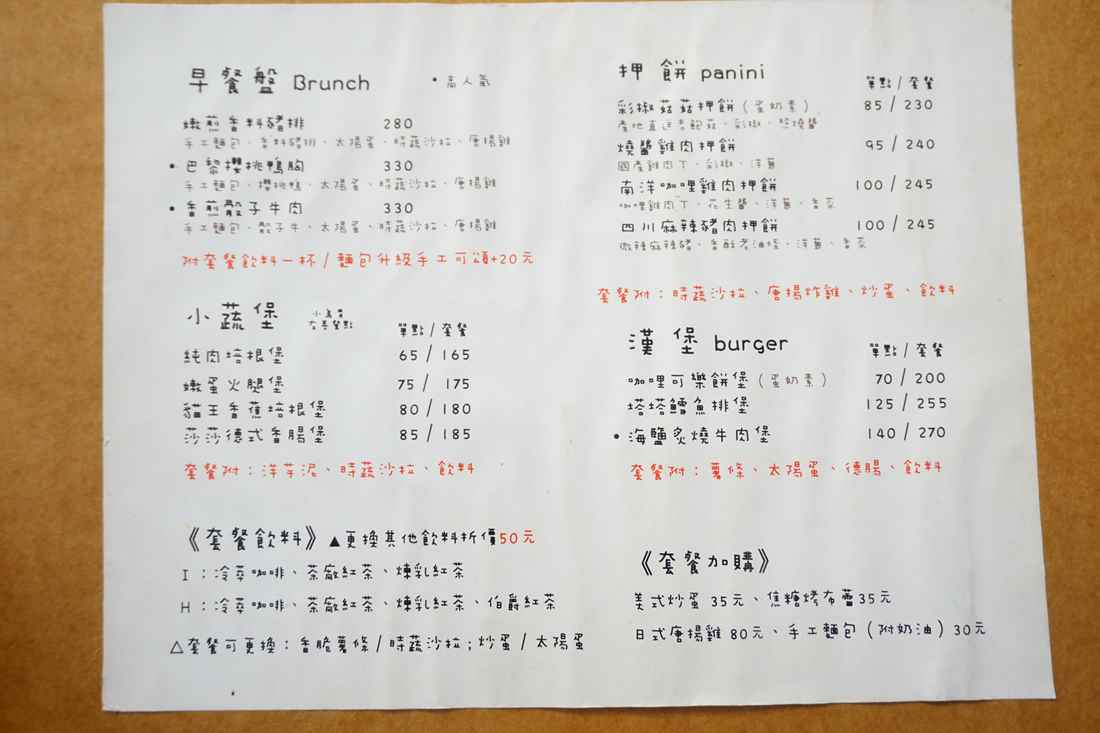 早餐盤 Brunch
• 高人氣
嫩煎香料豬排 280
手工麵包、香料豬排、太陽蛋、時蔬沙拉、唐揚雞
• 巴黎櫻桃鴨胸 330
手工麵包、櫻桃鴨、太陽蛋、時蔬沙拉、唐揚雞
• 香煎骰子牛肉 330
手工麵包、骰子牛、太陽蛋、時蔬沙拉、唐揚雞
附套餐飲料一杯/麵包升級手工可頌+20元
小蔬堡
單點/套餐
純肉培根堡 65/165
嫩蛋火腿堡 75/175
貓王香蕉培根堡 80/180
莎莎德式香腸堡 85/185
套餐附:洋芋泥、時蔬沙拉、飲料
《套餐飲料》▲更換其他飲料折價50元
I:冷萃咖啡、茶廠紅茶、煉乳紅茶
H:冷萃咖啡、茶廠紅茶、煉乳紅茶、伯爵紅茶
△套餐可更換:香脆薯條/時蔬沙拉;炒蛋/太陽蛋
押餅 panini
單點/套餐
彩椒菇菇押餅(蛋奶素) 85/230
產地直送杏鮑菇、彩椒、照燒醬
燒醬雞肉押餅 95/240
國產雞肉丁、彩椒、洋蔥
南洋咖哩雞肉押餅 100/245
咖哩雞肉丁、花生醬、洋蔥、香菜
四川麻辣豬肉押餅 100/245
微辣麻辣豬、香酥老油條、洋蔥、香菜
套餐附:時蔬沙拉、唐揚炸雞、炒蛋、飲料
漢堡 burger
單點/套餐
咖哩可樂餅堡(蛋奶素) 70/200
塔塔鱈魚排堡 125/255
• 海鹽炙燒牛肉堡 140/270
套餐附:薯條、太陽蛋、德腸、飲料
《套餐加購》
美式炒蛋 35元、焦糖烤布蕾35元
日式唐揚雞 80元、手工麵包(附奶油)30元